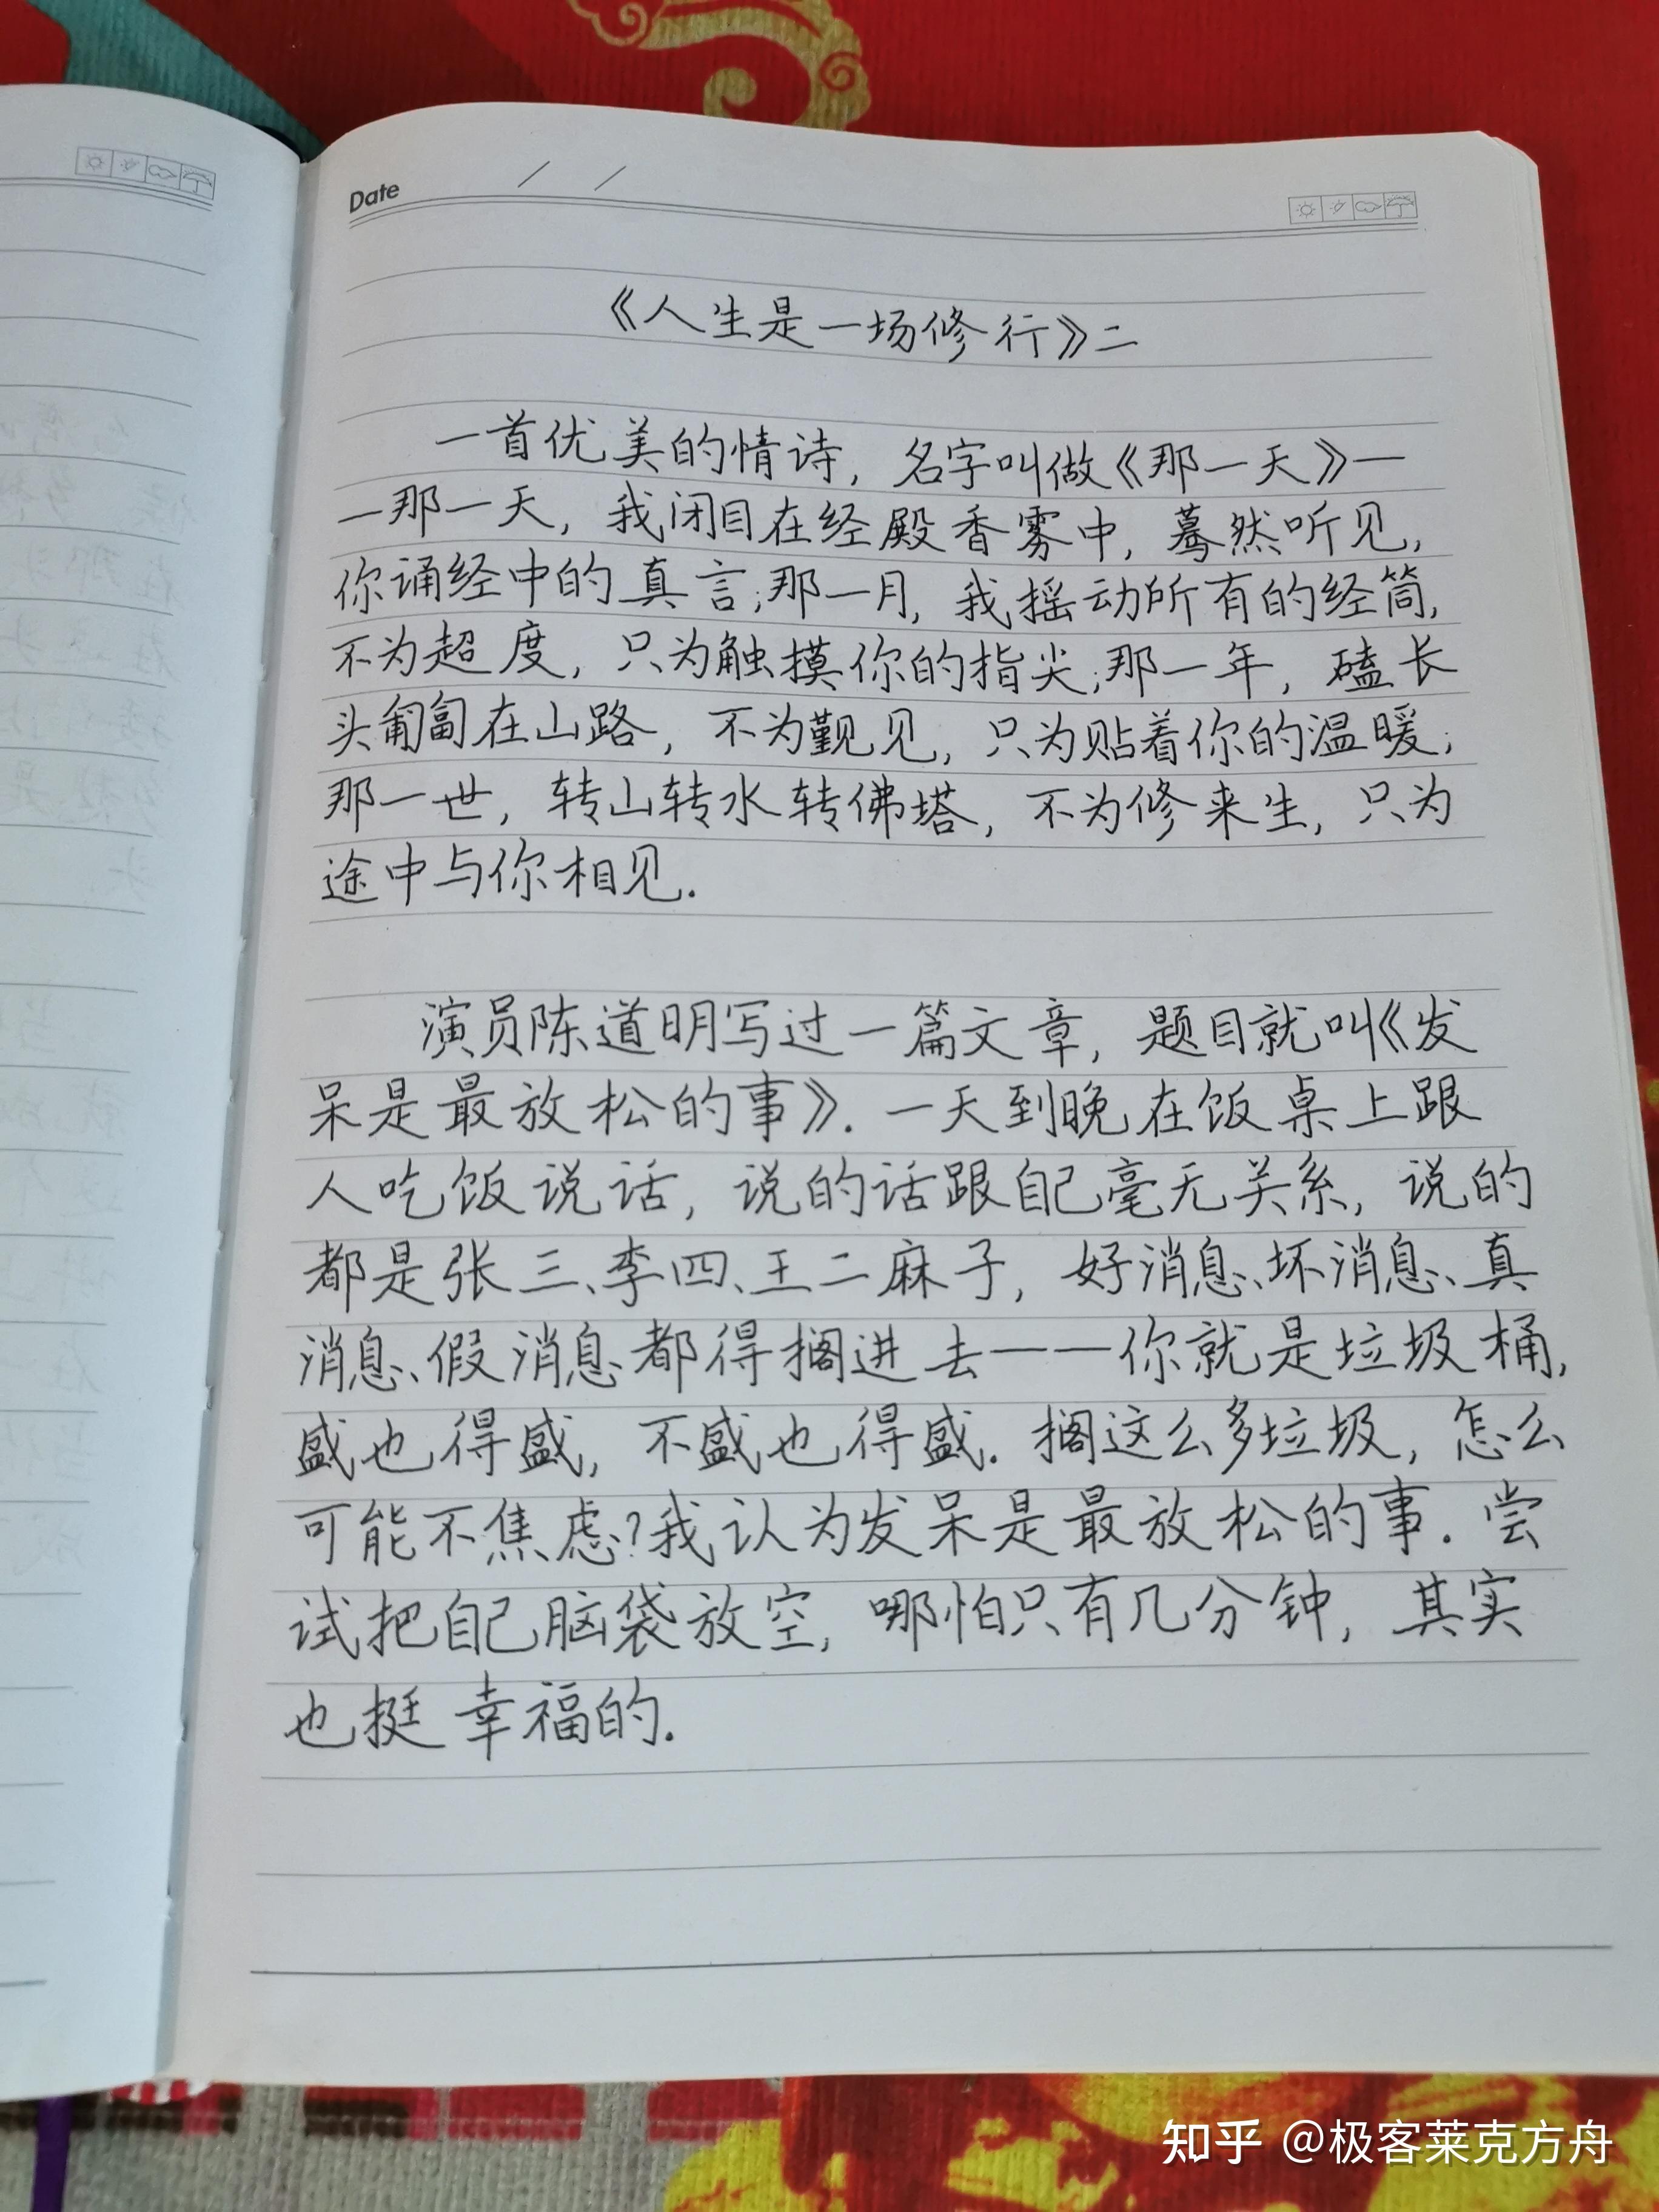 Date / /
《人生是一场修行》二
一首优美的情诗，名字叫做《那一天》—
—那一天，我闭目在经殿香雾中，蓦然听见，
你诵经中的真言；那一月，我摇动所有的经筒，
不为超度，只为触摸你的指尖；那一年，磕长
头匍匐在山路，不为觐见，只为贴着你的温暖；
那一世，转山转水转佛塔，不为修来生，只为
途中与你相见.
演员陈道明写过一篇文章，题目就叫《发
呆是最放松的事》. 一天到晚在饭桌上跟
人吃饭说话，说的话跟自己毫无关系，说的
都是张三、李四、王二麻子，好消息、坏消息、真
消息、假消息都得搁进去——你就是垃圾桶，
盛也得盛，不盛也得盛. 搁这么多垃圾，怎么
可能不焦虑？我认为发呆是最放松的事. 尝
试把自己脑袋放空，哪怕只有几分钟，其实
也挺幸福的.
知乎 @极客莱克方舟